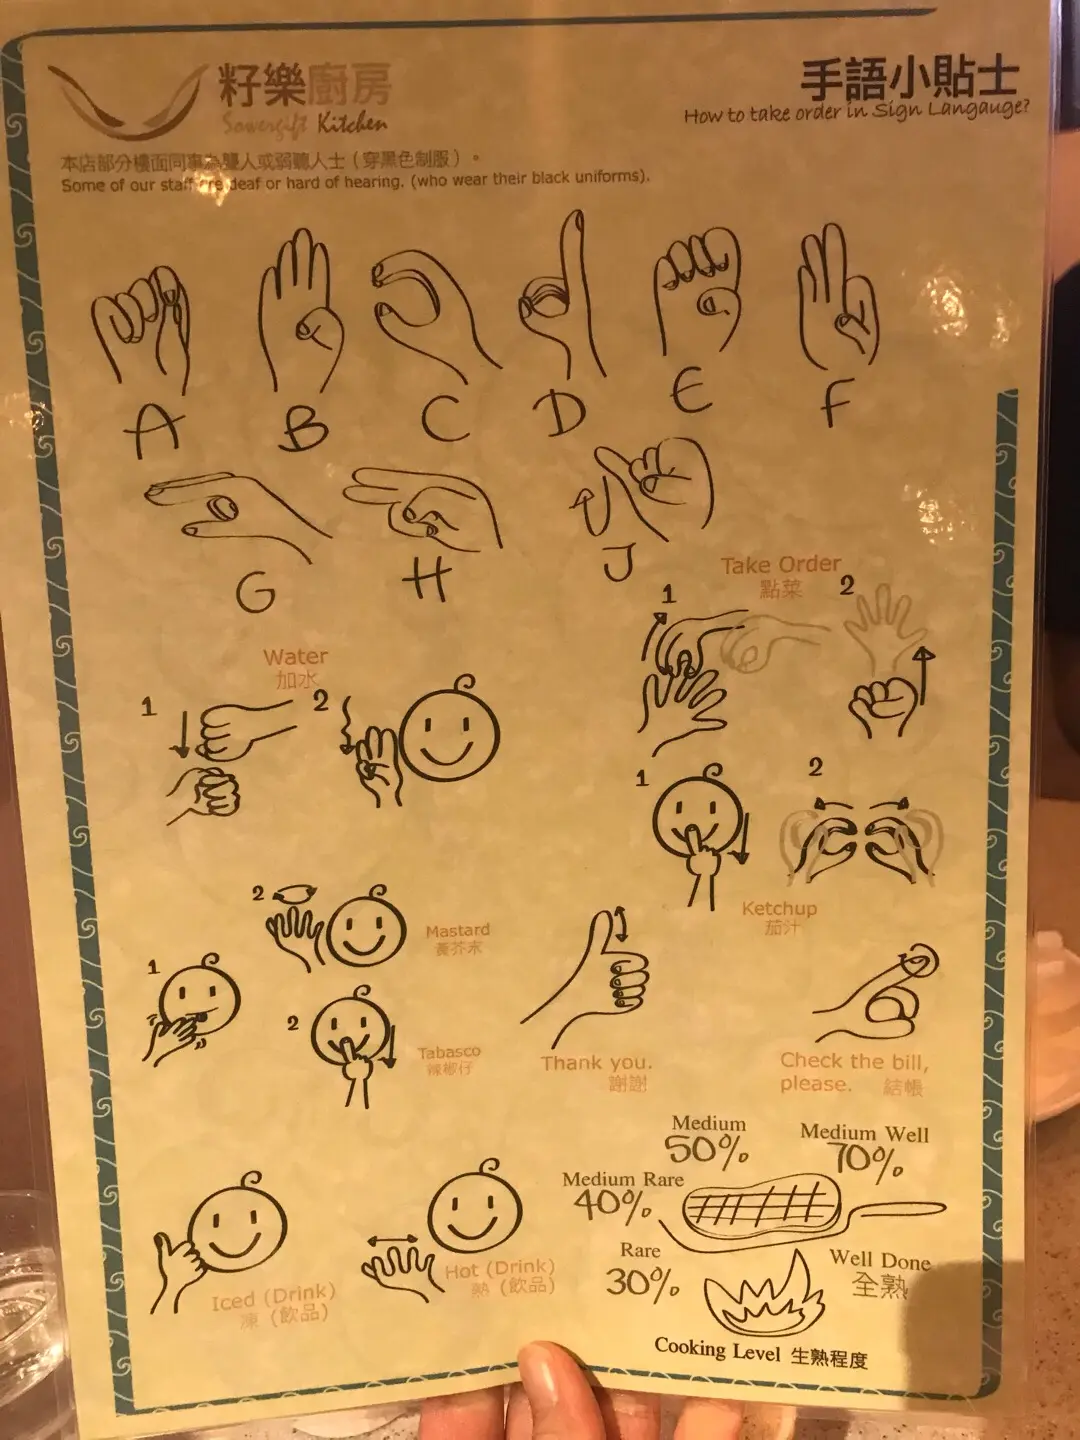 籽樂廚房
Sowergift Kitchen
手語小貼士
How to take order in Sign Langauge?
本店部分樓面同事為聾人或弱聽人士（穿黑色制服）。
Some of our staff are deaf or hard of hearing. (who wear their black uniforms).
A B C D E F
G H J
Take Order
點菜
1 2
Water
加水
1 2
1 2
Ketchup
茄汁
1
2
Mastard
黃芥末
2
Tabasco
辣椒仔
Thank you.
謝謝
Check the bill,
please. 結帳
Iced (Drink)
凍 (飲品)
Hot (Drink)
熱 (飲品)
Medium
50%
Medium Well
70%
Medium Rare
40%
Rare
30%
Well Done
全熟
Cooking Level 生熟程度